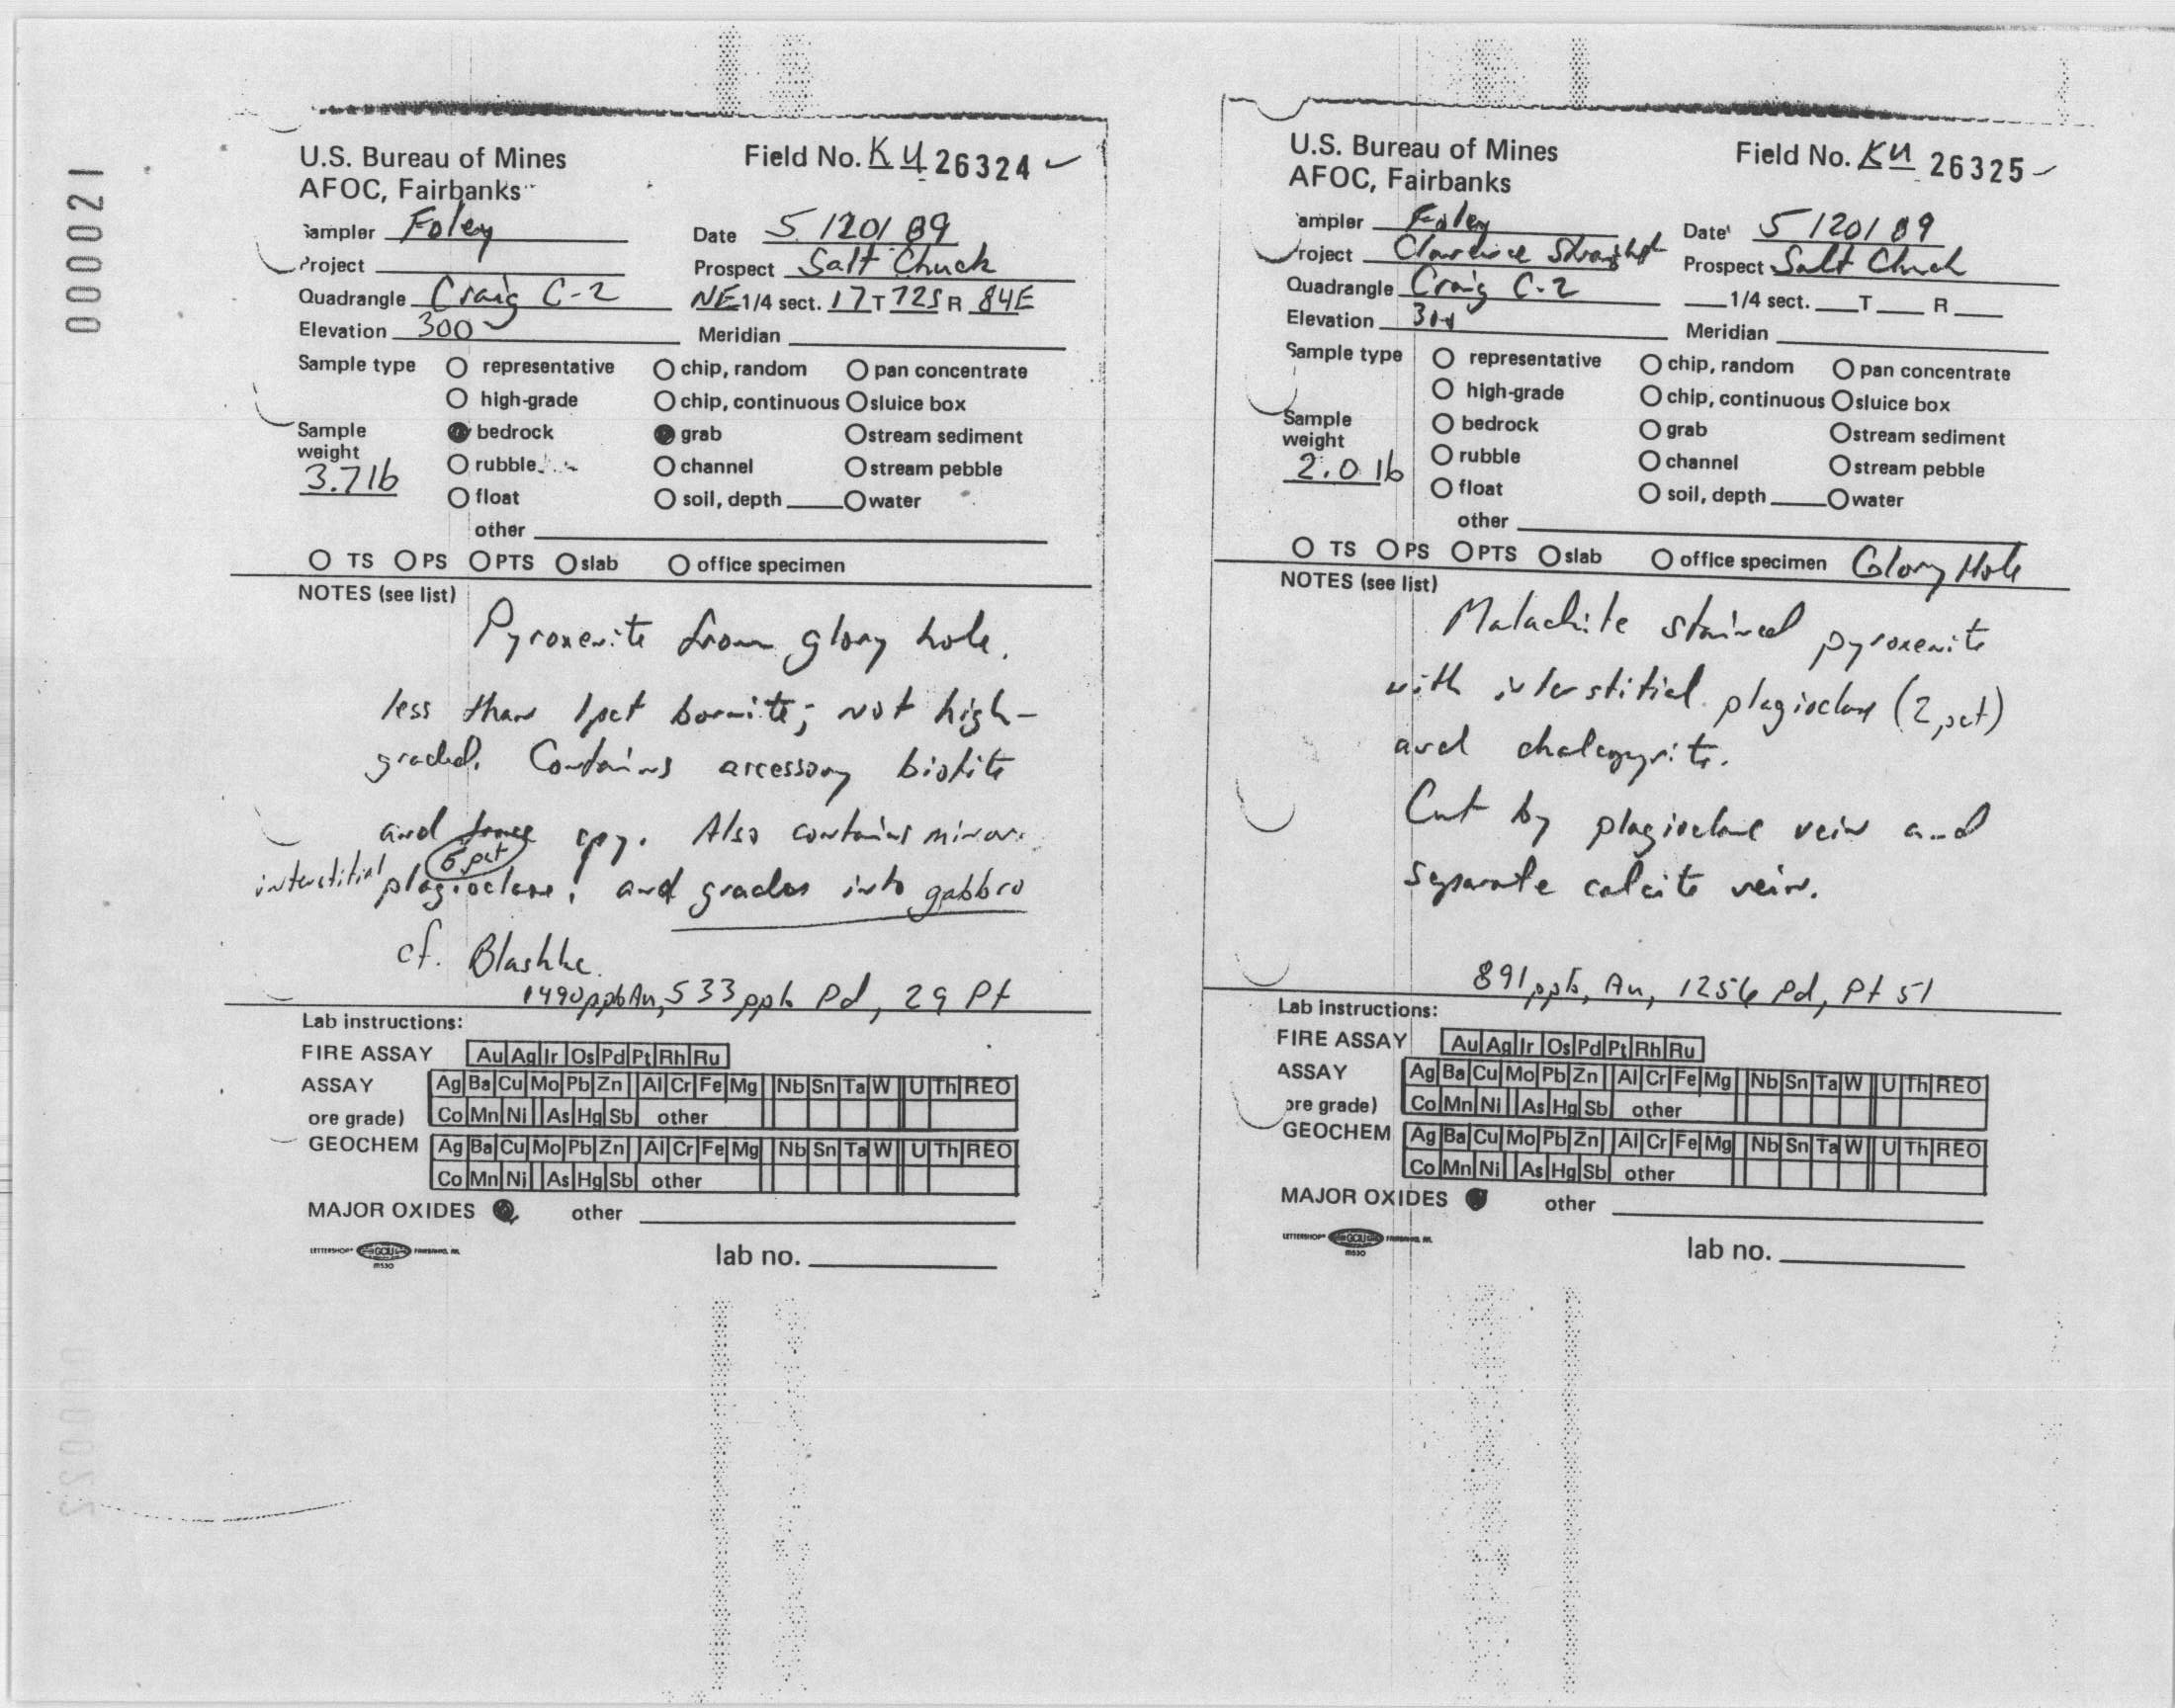 000021
U.S. Bureau of Mines
AFOC, Fairbanks
Field No. KU 26324 ✓
Sampler Foley
Date 5/20/89
Project
Prospect Salt Chuck
Quadrangle Craig C-2
NE 1/4 sect. 17 T 72S R 84E
Elevation 300
Meridian
Sample type ○ representative ○ chip, random ○ pan concentrate
○ high-grade ○ chip, continuous ○ sluice box
Sample weight ● bedrock ● grab ○ stream sediment
3.7 lb ○ rubble ○ channel ○ stream pebble
○ float ○ soil, depth ○ water
other
○ TS ○ PS ○ PTS ○ slab ○ office specimen
NOTES (see list)
Pyroxenite from glory hole.
less than 1pct bornite; not high-
graded. Contains accessory biotite
and trace cpy. Also contains minor
interstitial plagioclase, 5 pct and grades into gabbro
cf. Blashke.
1490 ppb Au, 533 ppb Pd, 29 Pt
Lab instructions:
FIRE ASSAY Au Ag Ir Os Pd Pt Rh Ru
ASSAY Ag Ba Cu Mo Pb Zn Al Cr Fe Mg Nb Sn Ta W U Th REO
ore grade) Co Mn Ni As Hg Sb other
GEOCHEM Ag Ba Cu Mo Pb Zn Al Cr Fe Mg Nb Sn Ta W U Th REO
Co Mn Ni As Hg Sb other
MAJOR OXIDES ● other
LETTERSHOP GCIU FAIRBANKS, AK.
lab no.
U.S. Bureau of Mines
AFOC, Fairbanks
Field No. KU 26325 ✓
ampler Foley
Date 5/20/89
roject Clarence Straight
Prospect Salt Chuck
Quadrangle Craig C-2
1/4 sect. T R
Elevation 300
Meridian
Sample type ○ representative ○ chip, random ○ pan concentrate
○ high-grade ○ chip, continuous ○ sluice box
Sample weight ○ bedrock ○ grab ○ stream sediment
2.0 lb ○ rubble ○ channel ○ stream pebble
○ float ○ soil, depth ○ water
other
○ TS ○ PS ○ PTS ○ slab ○ office specimen Glory Hole
NOTES (see list)
Malachite stained pyroxenite
with interstitial plagioclase (2 pct)
and chalcopyrite.
Cut by plagioclase vein and
separate calcite vein.
891 ppb, Au, 1256 Pd, Pt 51
Lab instructions:
FIRE ASSAY Au Ag Ir Os Pd Pt Rh Ru
ASSAY Ag Ba Cu Mo Pb Zn Al Cr Fe Mg Nb Sn Ta W U Th REO
ore grade) Co Mn Ni As Hg Sb other
GEOCHEM Ag Ba Cu Mo Pb Zn Al Cr Fe Mg Nb Sn Ta W U Th REO
Co Mn Ni As Hg Sb other
MAJOR OXIDES ● other
LETTERSHOP GCIU
lab no.